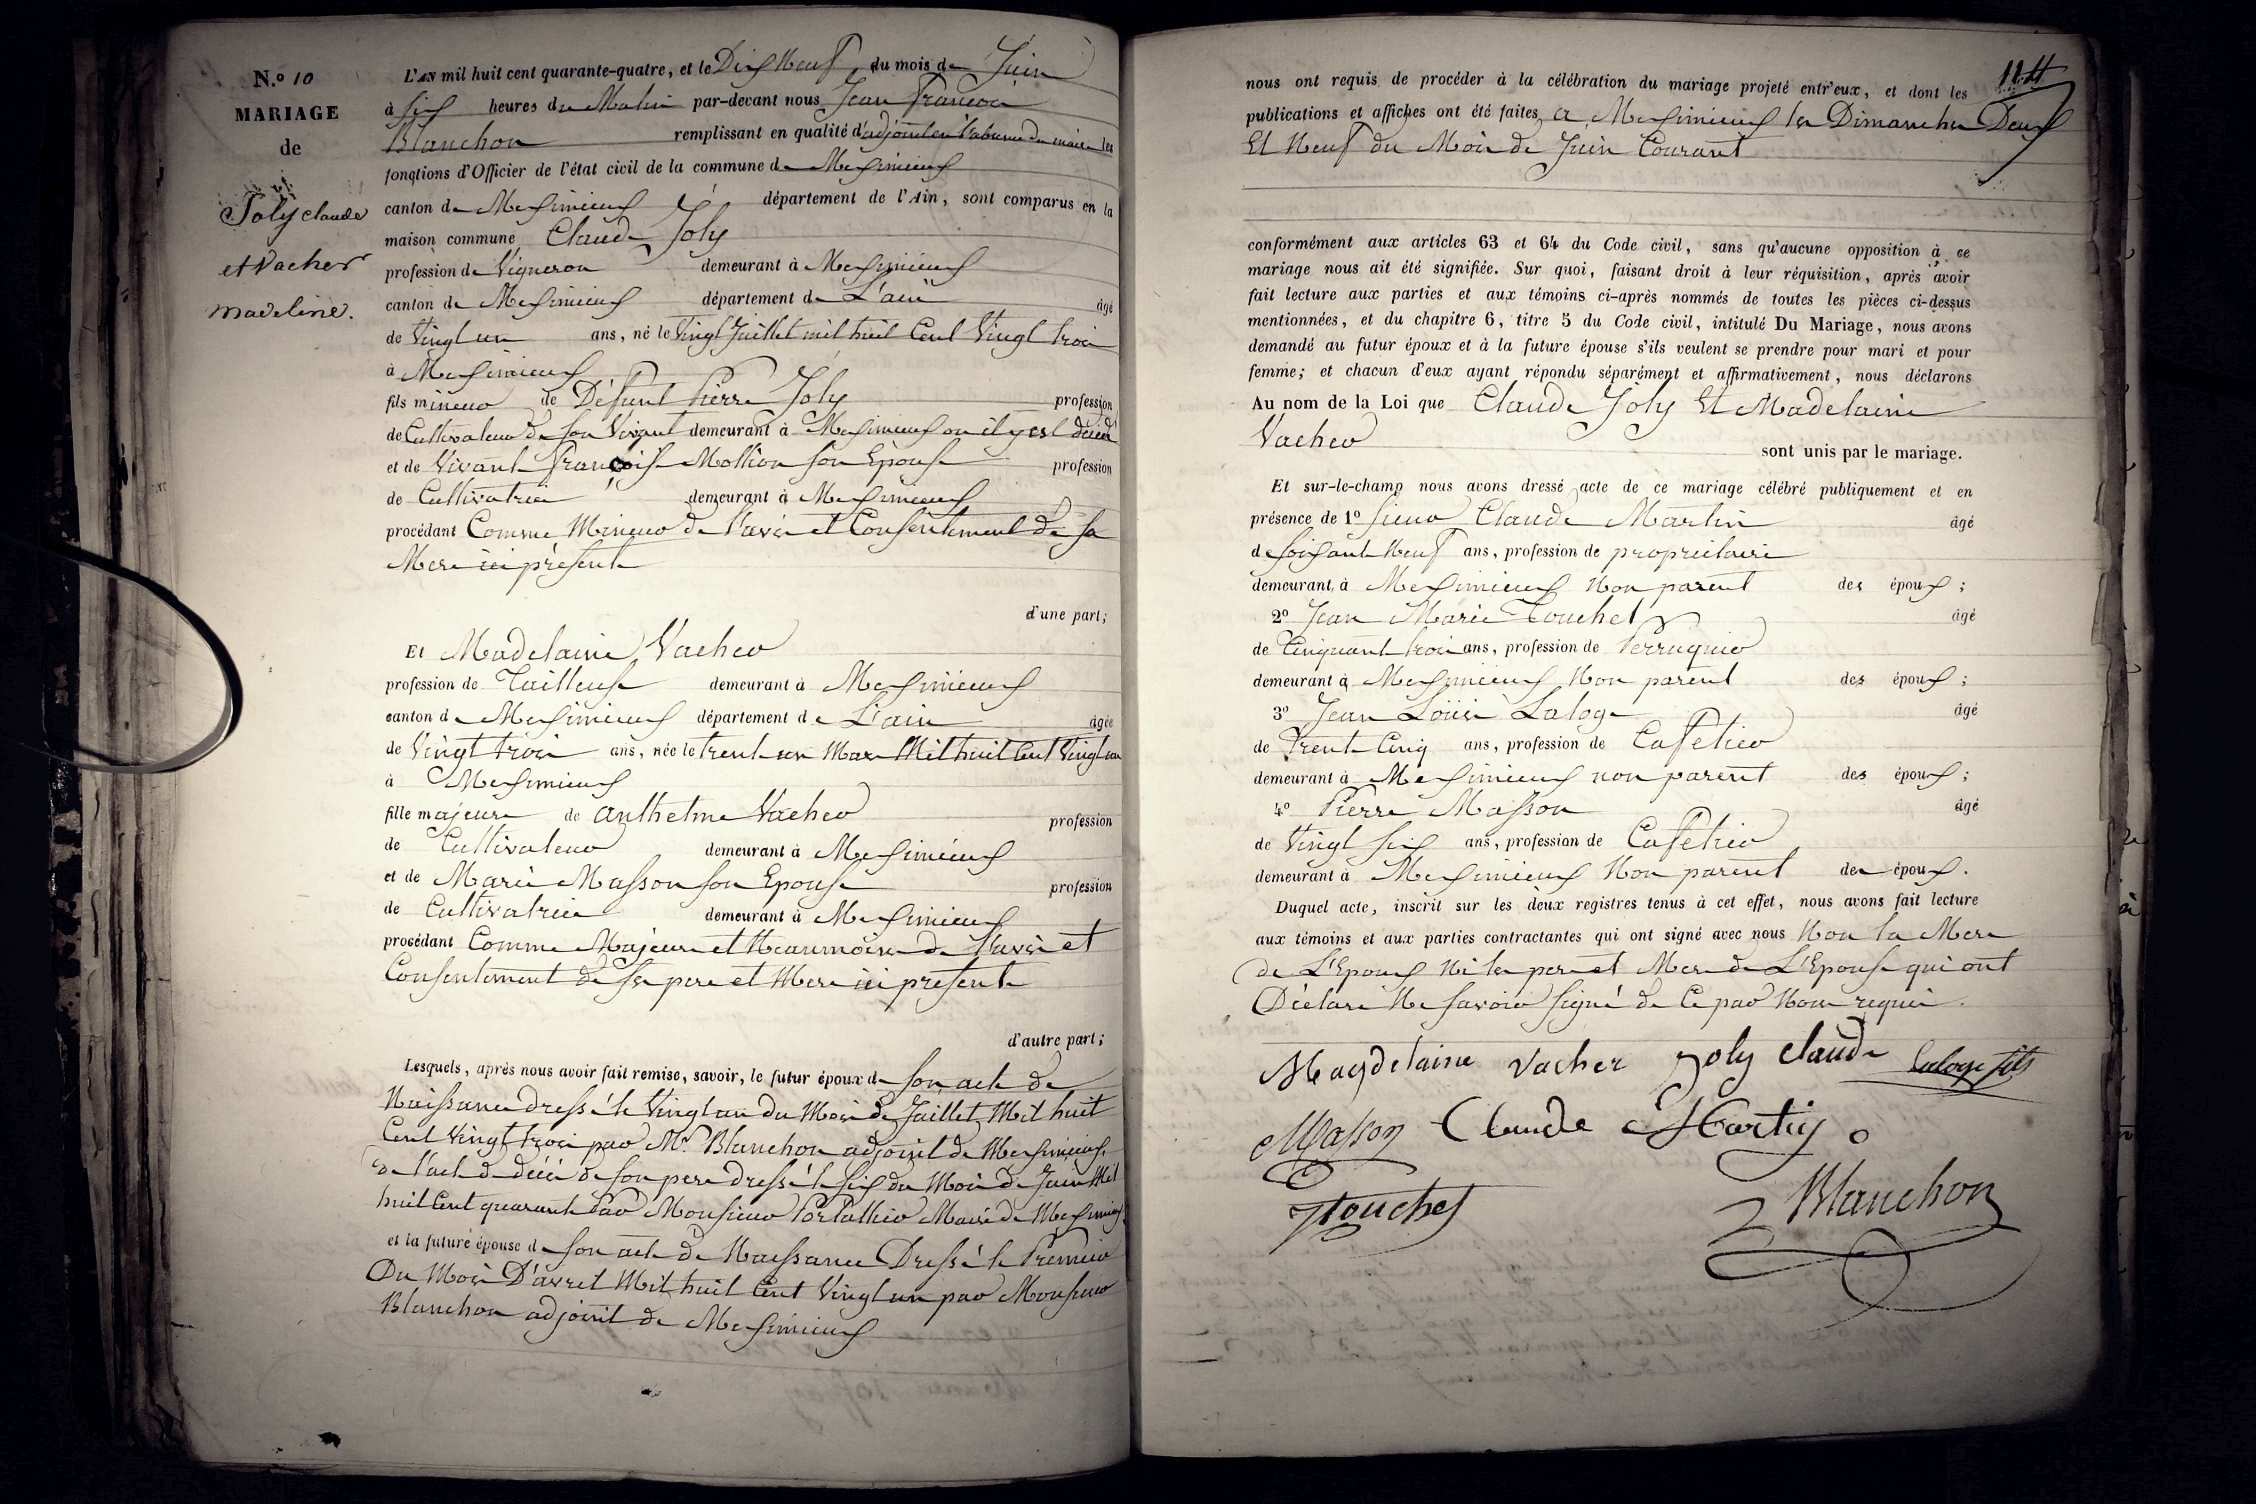 N.o 10
MARIAGE
de
Joly Claude
et Vacher
madeline.
L'AN mil huit cent quarante-quatre, et le Dix Neuf du mois de Juin
à six heures du Matin par-devant nous Jean François
Blanchon remplissant en qualité d'adjoint en l'absence du maire les
fonctions d'Officier de l'état civil de la commune de Meximieux
canton de Meximieux département de l'Ain, sont comparus en la
maison commune Claude Joly
profession de Vigneron demeurant à Meximieux
canton de Meximieux département de L'ain âgé
de Vingt un ans, né le Vingt Juillet mil huit Cent Vingt trois
à Meximieux
fils mineur de Défunt Pierre Joly profession
de Cultivateur de son Vivant demeurant à Meximieux ou il y est décédé
et de Vivante Françoise Mollion son Epouse profession
de Cultivatrice demeurant à Meximieux
procédant Comme Mineur de l'avis et Consentement de sa
Mere ici présente
d'une part;
Et Madelaine Vacher
profession de Tailleuse demeurant à Meximieux
canton de Meximieux département de L'ain âgée
de Vingt trois ans, née le trente un Mars Mil huit Cent Vingt un
à Meximieux
fille majeure de anthelme Vacher profession
de Cultivateur demeurant à Meximieux
et de Marie Masson son Epouse profession
de Cultivatrice demeurant à Meximieux
procédant Comme Majeure et Neanmoins de l'avis et
Consentement de ses pere et Mere ici présents
d'autre part;
Lesquels, après nous avoir fait remise, savoir, le futur époux de son acte de
Naissance dressé le Vingt un du Mois de Juillet Mil huit
Cent Vingt trois par Mr. Blanchon adjoint de Meximieux,
de l'acte de décès de son pere dressé le six du Mois de Juin Mil
huit Cent quarante Par Monsieur Portallier Maire de Meximieux
et la future épouse de son acte de Naissance Dressé le Premier
Du Mois D'avril Mil huit Cent Vingt un par Monsieur
Blanchon adjoint de Meximieux
114
nous ont requis de procéder à la célébration du mariage projeté entr'eux, et dont les
publications et affiches ont été faites a Meximieux les Dimanches Deux
Et Neuf du Mois de Juin Courant
conformément aux articles 63 et 64 du Code civil, sans qu'aucune opposition à ce
mariage nous ait été signifiée. Sur quoi, faisant droit à leur réquisition, après avoir
fait lecture aux parties et aux témoins ci-après nommés de toutes les pièces ci-dessus
mentionnées, et du chapitre 6, titre 5 du Code civil, intitulé Du Mariage, nous avons
demandé au futur époux et à la future épouse s'ils veulent se prendre pour mari et pour
femme; et chacun d'eux ayant répondu séparément et affirmativement, nous déclarons
Au nom de la Loi que Claude Joly Et Madelaine
Vacher
sont unis par le mariage.
Et sur-le-champ nous avons dressé acte de ce mariage célébré publiquement et en
présence de 1o sieur Claude Martin âgé
de soixante Neuf ans, profession de proprietaire
demeurant à Meximieux Non parent des époux;
2o Jean Marie Touchet âgé
de Cinquante trois ans, profession de Perruquier
demeurant à Meximieux Non parent des époux;
3o Jean Loüis Laloge âgé
de Trente Cinq ans, profession de Cafetier
demeurant à Meximieux non parent des époux;
4o Pierre Masson âgé
de Vingt six ans, profession de Cafetier
demeurant à Meximieux Non parent des époux.
Duquel acte, inscrit sur les deux registres tenus à cet effet, nous avons fait lecture
aux témoins et aux parties contractantes qui ont signé avec nous Non la Mere
de L'Epoux Ni les pere et Mere de L'Epouse qui ont
Déclaré Ne savoir signé de Ce par Nous requis.
Magdelaine vacher Joly Claude Laloge fils
Masson Claude Martin
Touchet
Blanchon